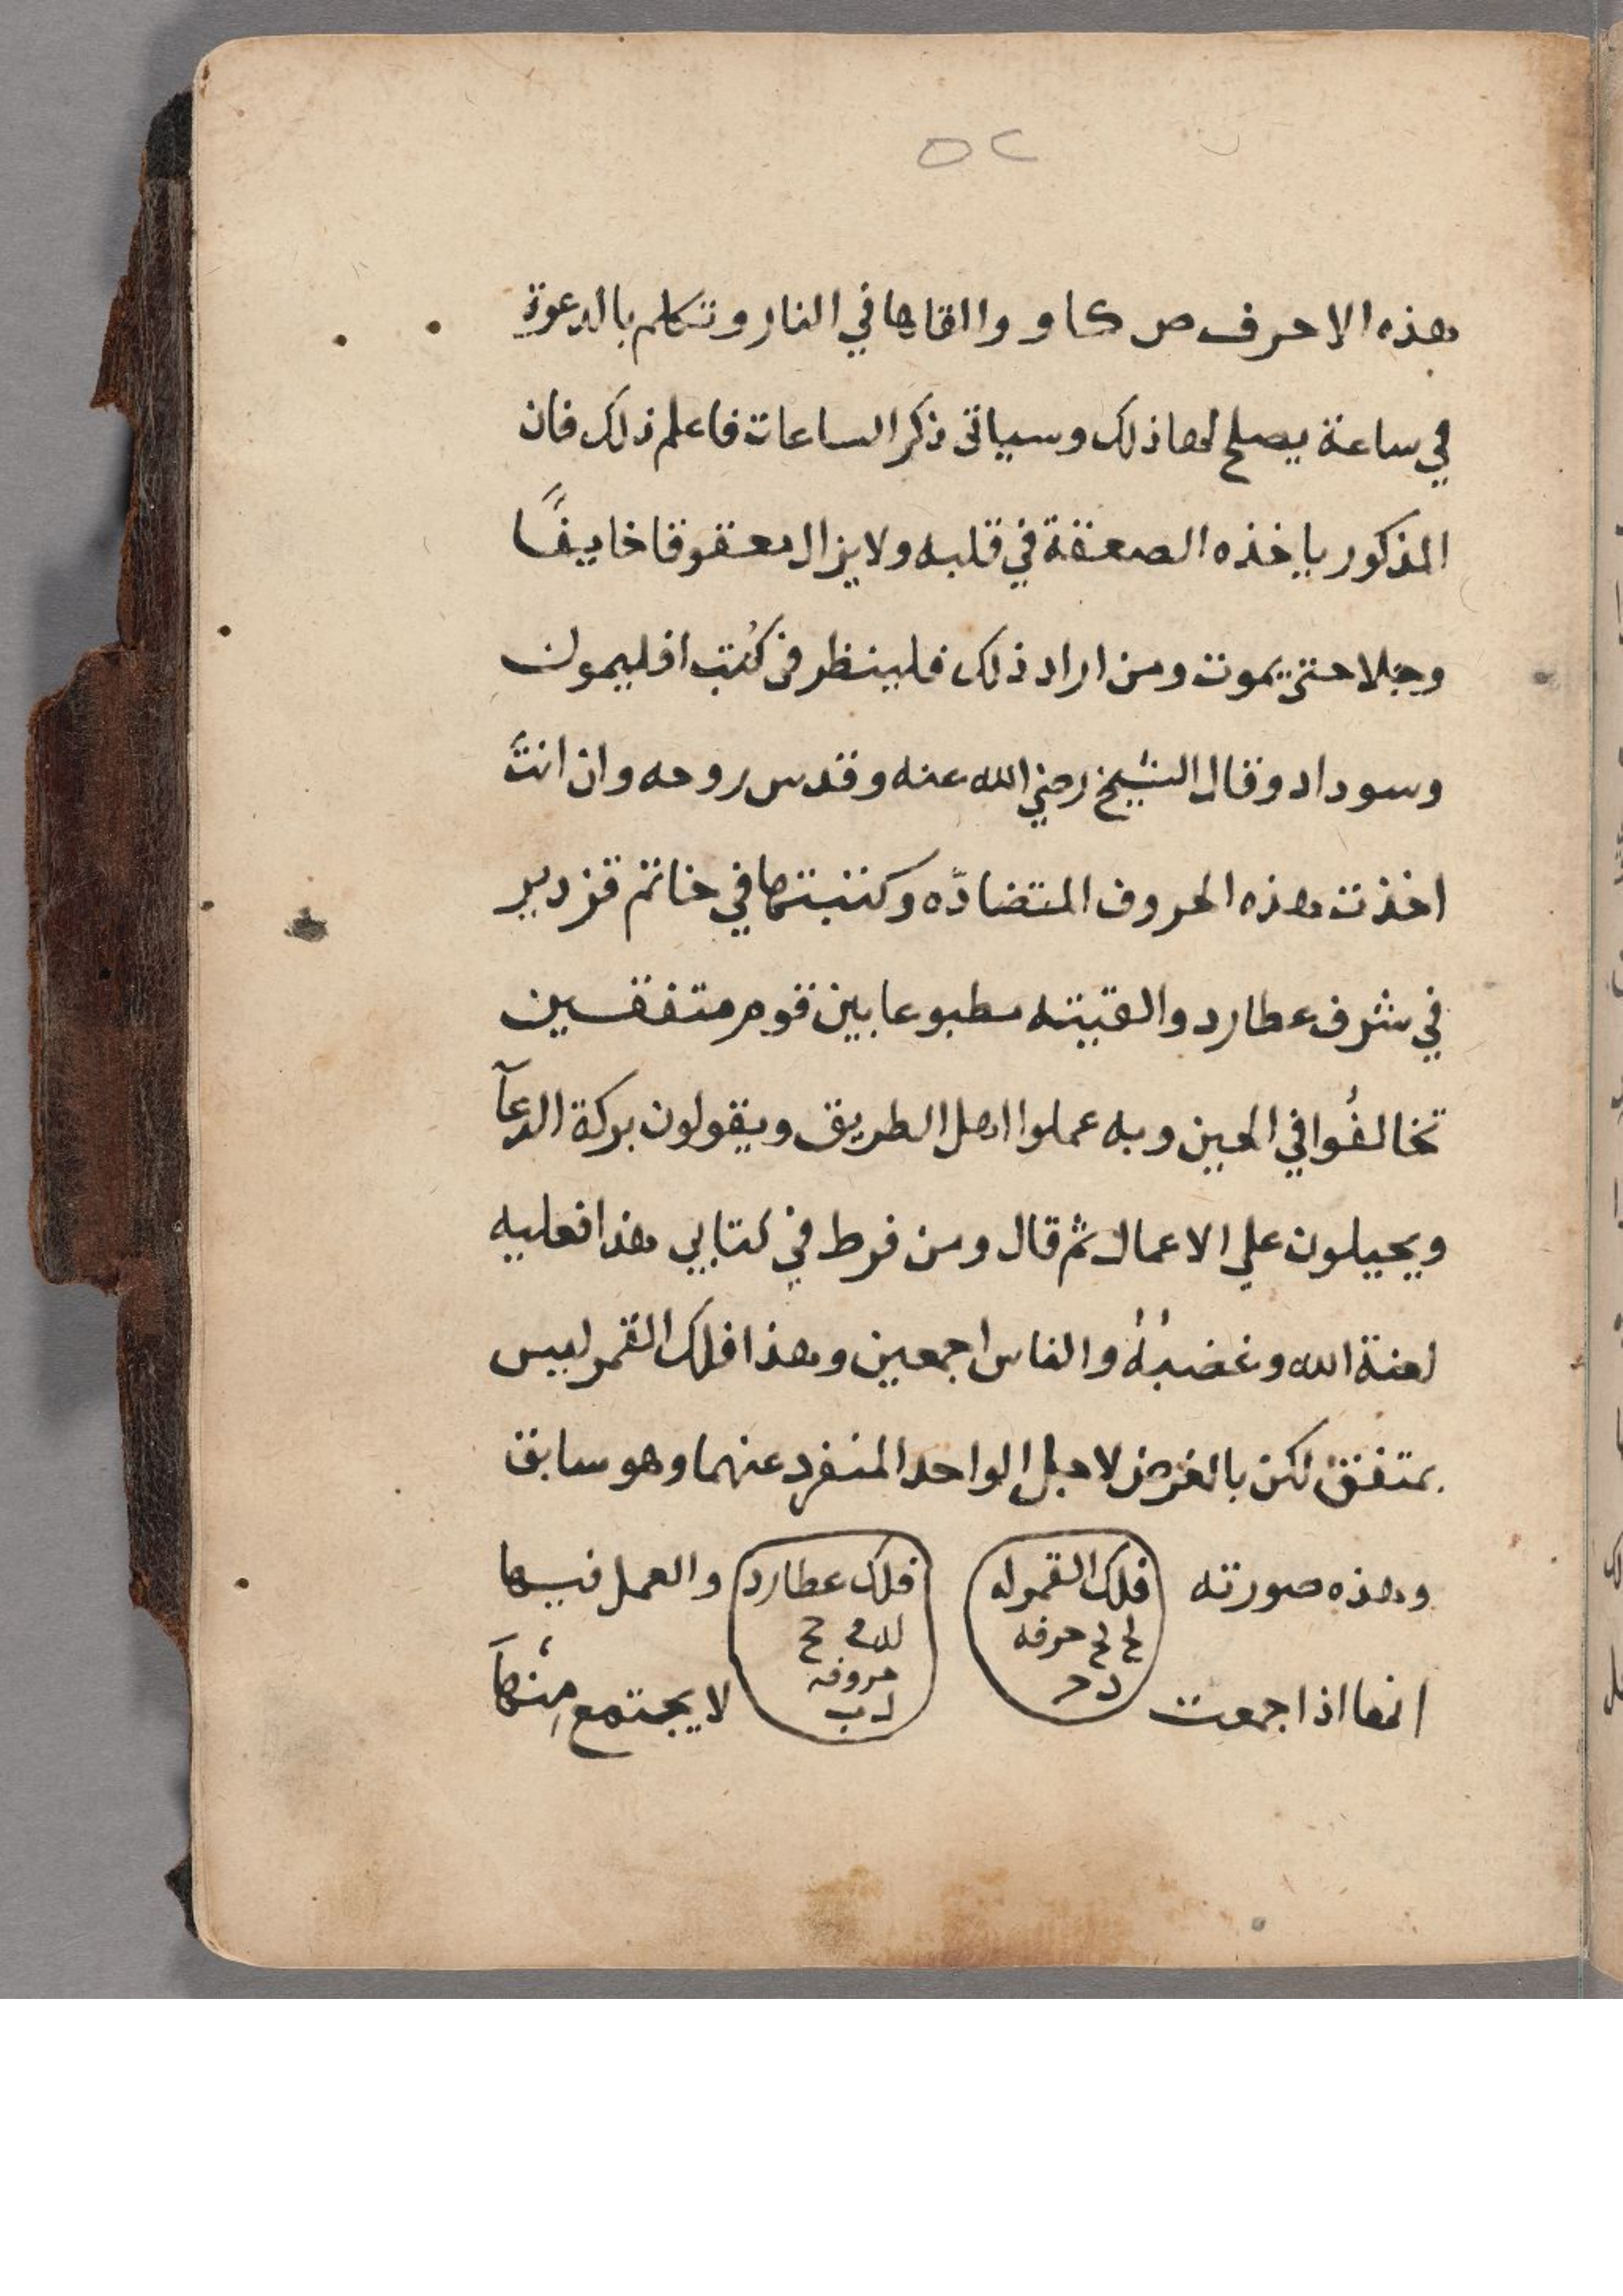 ٥٢
هذه الاحرف ص ك ا و والقاها في النار وتكلم بالدعوة
في ساعة يصلح لها ذلك وسياتى ذكر الساعات فاعلم ذلك فان
المذكور ياخذه الصعقة في قلبه ولا يزال معقوقا خايفًا
وجلا حتى يموت ومن اراد ذلك فلينظر في كُتب افليمون
وسوداد وقال الشيخ رضي الله عنه وقدس روحه وان انتَ
اخذت هذه الحروف المتضادّه وكتبتها في خاتم قزدير
في شرف عطارد والقيته مطبوعا بين قوم متفقين
تخالفُوا في الحين وبه عملوا اهل الطريق ويقولون بركة الدعآ
ويحيلون علي الاعمال ثم قال ومن فرط في كتابي هذا فعليه
لعنة الله وغضبُهُ والناس اجمعين وهذا فلك القمر ليس
بمتفق لكن بالغرض لاجل الواحد المنفرد عنهما وهو سابق
وهذه صورته فلك القمر له فلك عطارد والعمل فيها
حرفه
حروفه
انها اذا جمعت لا يجتمع مِنْهَا